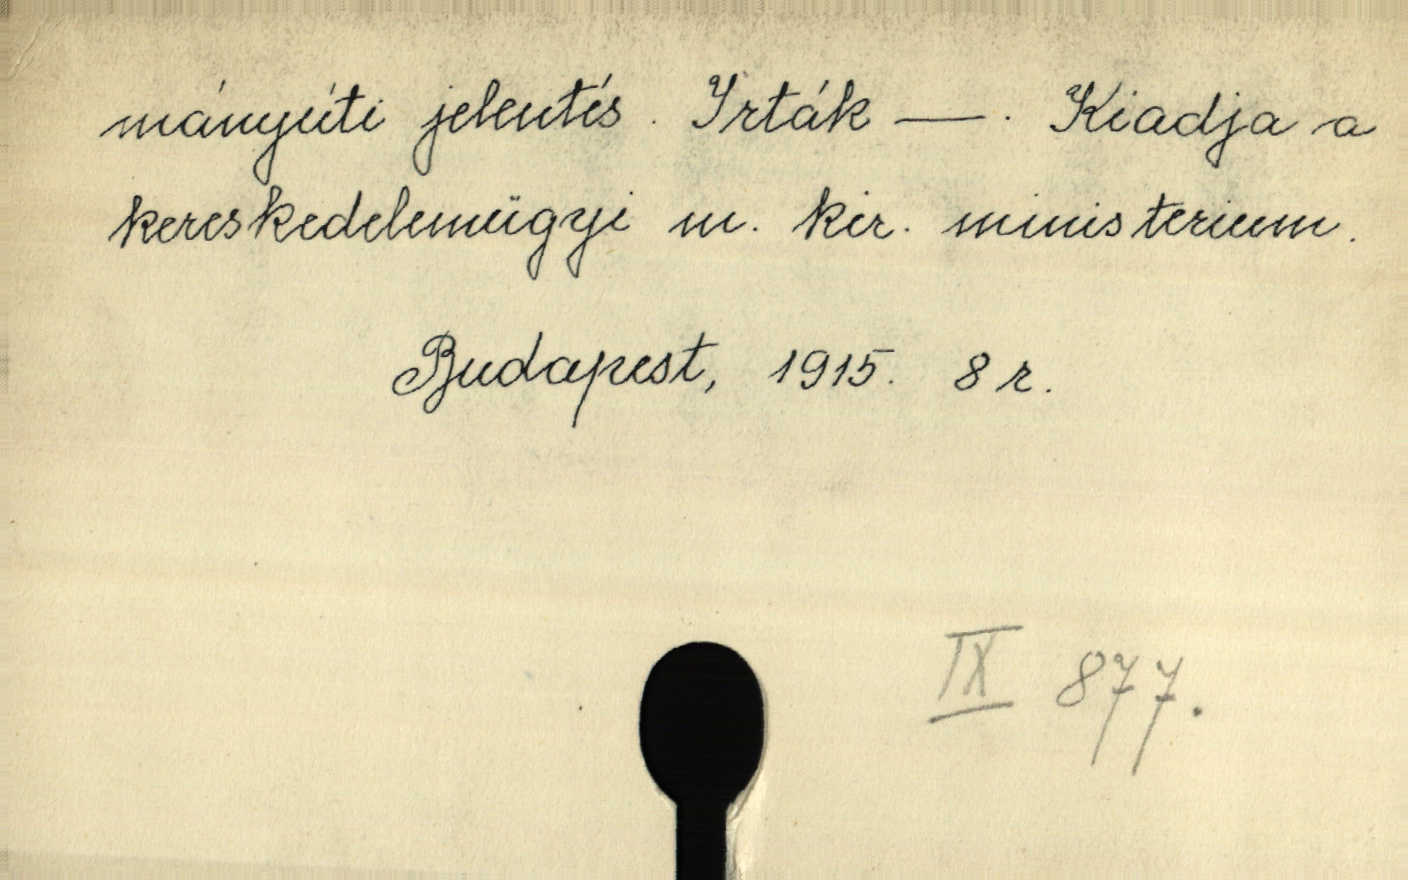 mányúti jelentés. Irták —. Kiadja a
kereskedelemügyi m. kir. ministerium.
Budapest, 1915. 8 r.
IX 877.